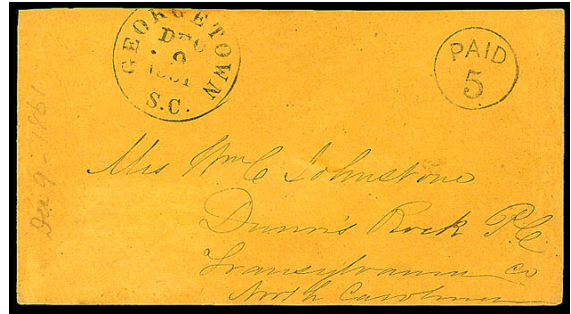 GEORGETOWN
DEC
9
1861
S.C.
PAID
5
Dec 9 - 1861
Mrs Wm C Johnstone
Dunn's Rock P.O.
Transylvania Co
North Carolina